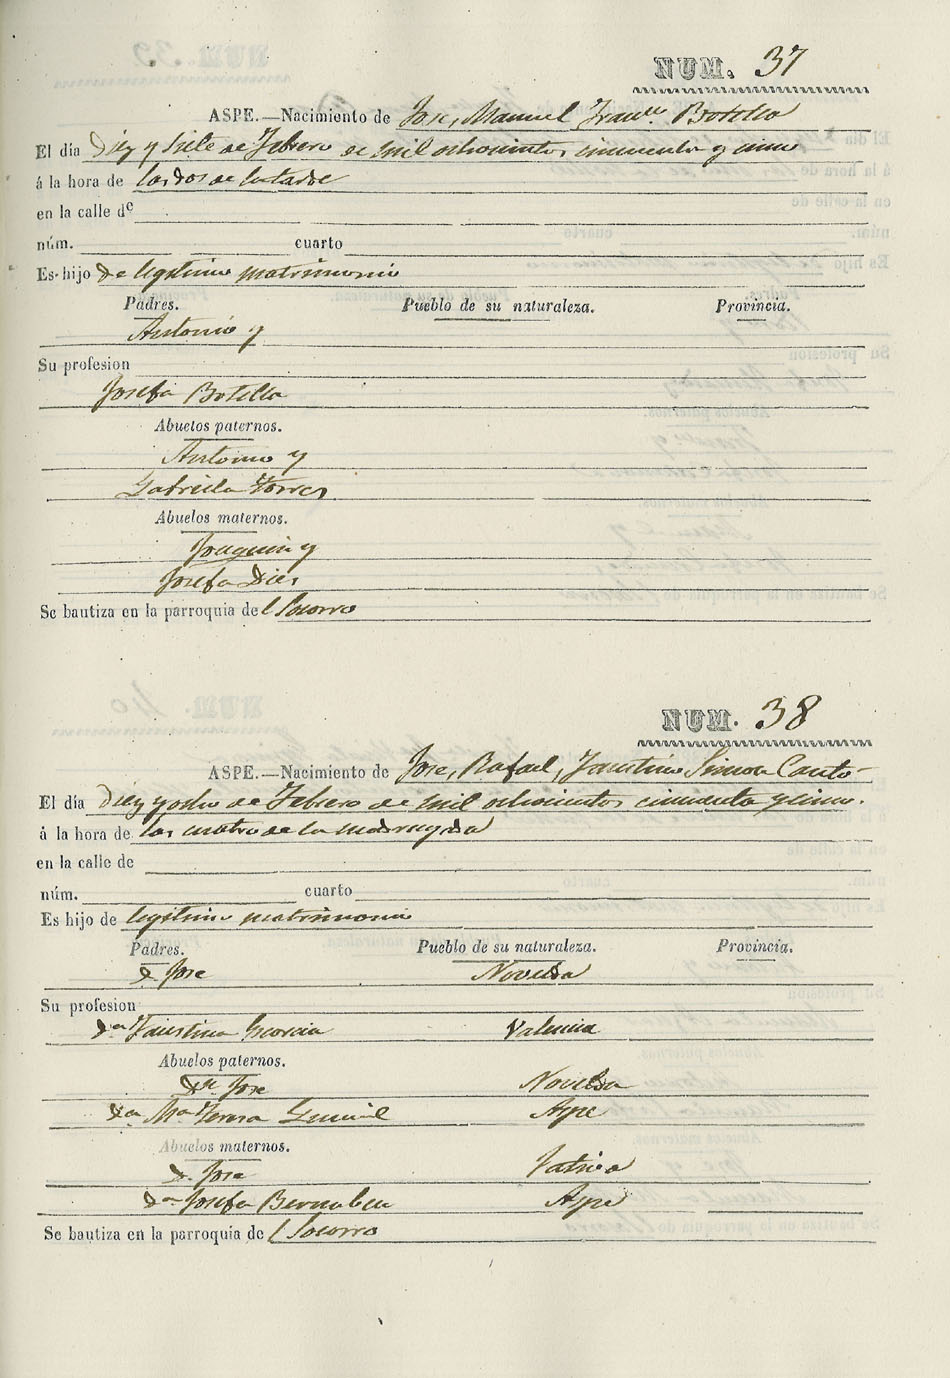 NUM. 37
ASPE.—Nacimiento de Jose, Manuel Fran.co Botella
El día Diez y siete de Febrero de mil ochocientos cincuenta y cinco
á la hora de las dos de la tarde
en la calle de
núm. cuarto
Es hijo de legitimo matrimonio
Padres. Pueblo de su naturaleza. Provincia.
Antonio y
Su profesion
Josefa Botella
Abuelos paternos.
Antonio y
Gabriela Torres
Abuelos maternos.
Joaquin y
Josefa Dies
Se bautiza en la parroquia del Socorro
NUM. 38
ASPE.—Nacimiento de Jose, Rafael, Faustino Simon Cantó
El día Diez y ocho de Febrero de mil ochocientos cincuenta y cinco.
á la hora de las cuatro de la madrugada
en la calle de
núm. cuarto
Es hijo de legitimo matrimonio
Padres. Pueblo de su naturaleza. Provincia.
Dn Jose Novelda
Su profesion
Da Faustina Valencia
Abuelos paternos.
Dn Jose Novelda
Da Ma Teresa Aspe
Abuelos maternos.
Dn Jose Jativa
Da Josefa Bernabeu Aspe
Se bautiza en la parroquia del Socorro